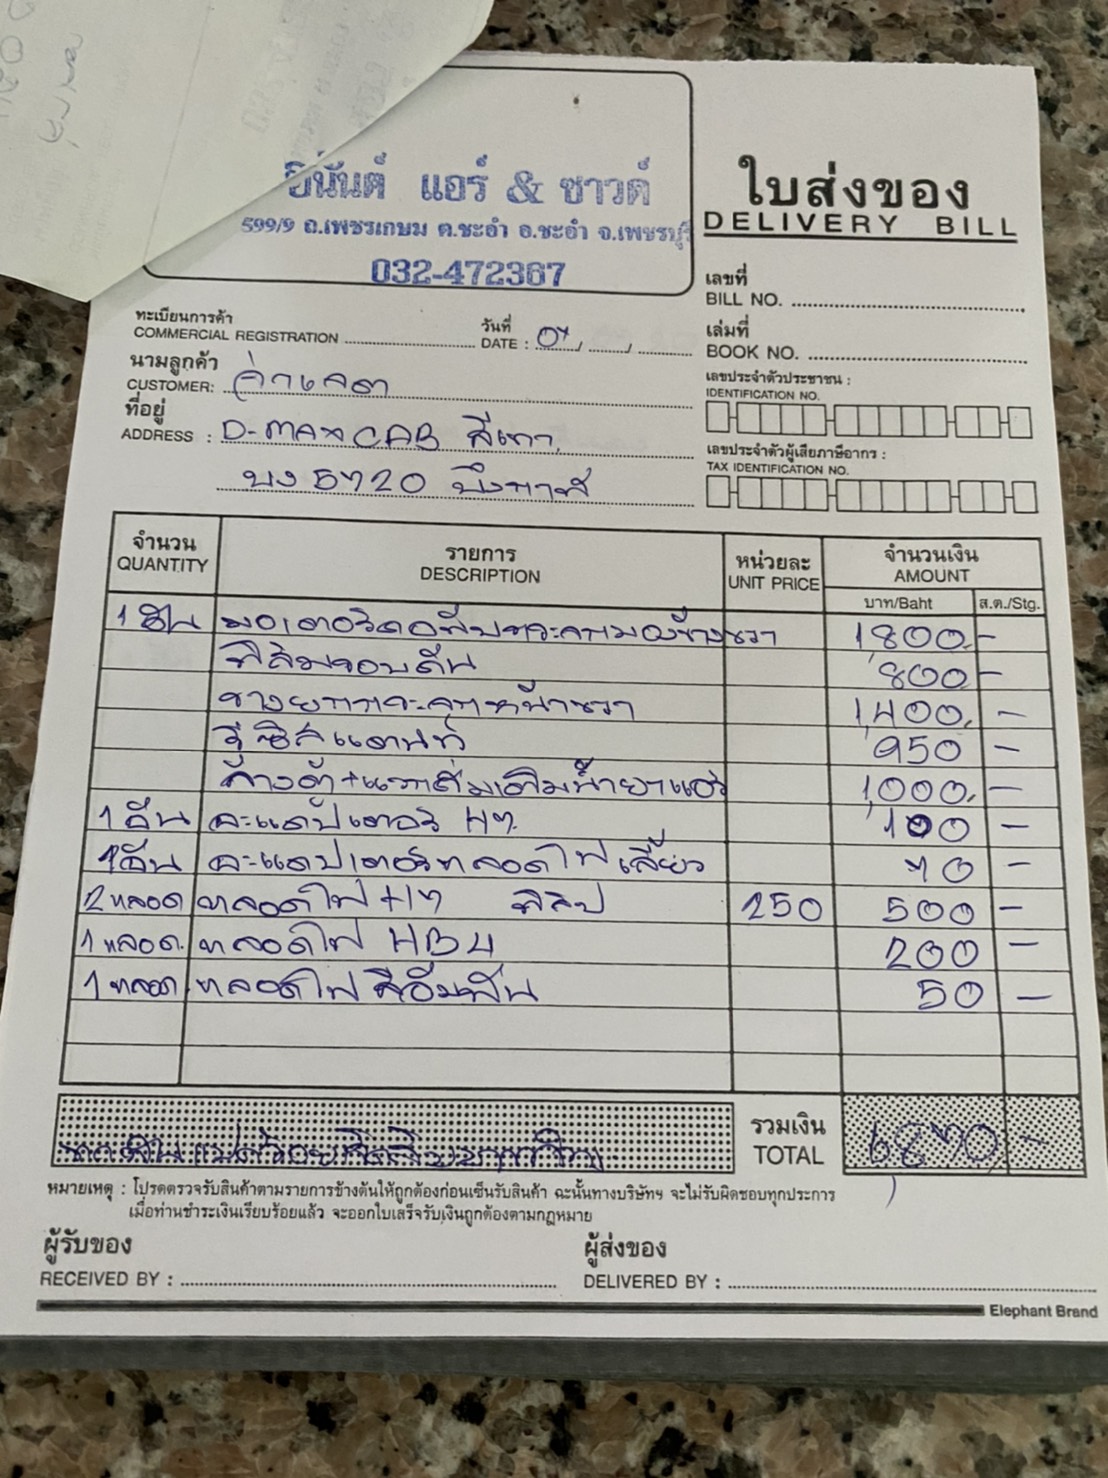 อนันต์ แอร์ & ซาวด์
599/9 ถ.เพชรเกษม ต.ชะอำ อ.ชะอำ จ.เพชรบุรี
032-472367
ใบส่งของ
DELIVERY BILL
เลขที่
BILL NO.
ทะเบียนการค้า
COMMERCIAL REGISTRATION
วันที่
DATE :
เล่มที่
BOOK NO.
นามลูกค้า
CUSTOMER:
เลขประจำตัวประชาชน :
IDENTIFICATION NO.
ที่อยู่
ADDRESS : D-MAX CAB สีเทา
เลขประจำตัวผู้เสียภาษีอากร :
TAX IDENTIFICATION NO.
บง 5720 บึงกาฬ
จำนวน รายการ หน่วยละ จำนวนเงิน
QUANTITY DESCRIPTION UNIT PRICE AMOUNT
บาท/Baht ส.ต./Stg.
1 อัน มอเตอร์ 1,800.-
ฟิล์มรอบคัน 800.-
1,400.-
รีซิสแตนท์ 950 -
ล้างตู้+แวคคั่มเติมน้ำยาแอร์ 1,000.-
1 อัน อะแดปเตอร์ H7. 100 -
1 อัน อะแดปเตอร์หลอดไฟเลี้ยว 70 -
2 หลอด หลอดไฟ H7 ฟิลิป 250 500 -
1 หลอด. หลอดไฟ HB4 200 -
1 หลอด หลอดไฟ 50 -
หกพันแปดร้อยเจ็ดสิบบาทถ้วน
รวมเงิน
TOTAL 6,870.-
หมายเหตุ : โปรดตรวจรับสินค้าตามรายการข้างต้นให้ถูกต้องก่อนเซ็นรับสินค้า ฉะนั้นทางบริษัทฯ จะไม่รับผิดชอบทุกประการ
เมื่อท่านชำระเงินเรียบร้อยแล้ว จะออกใบเสร็จรับเงินถูกต้องตามกฎหมาย
ผู้รับของ ผู้ส่งของ
RECEIVED BY : DELIVERED BY :
Elephant Brand